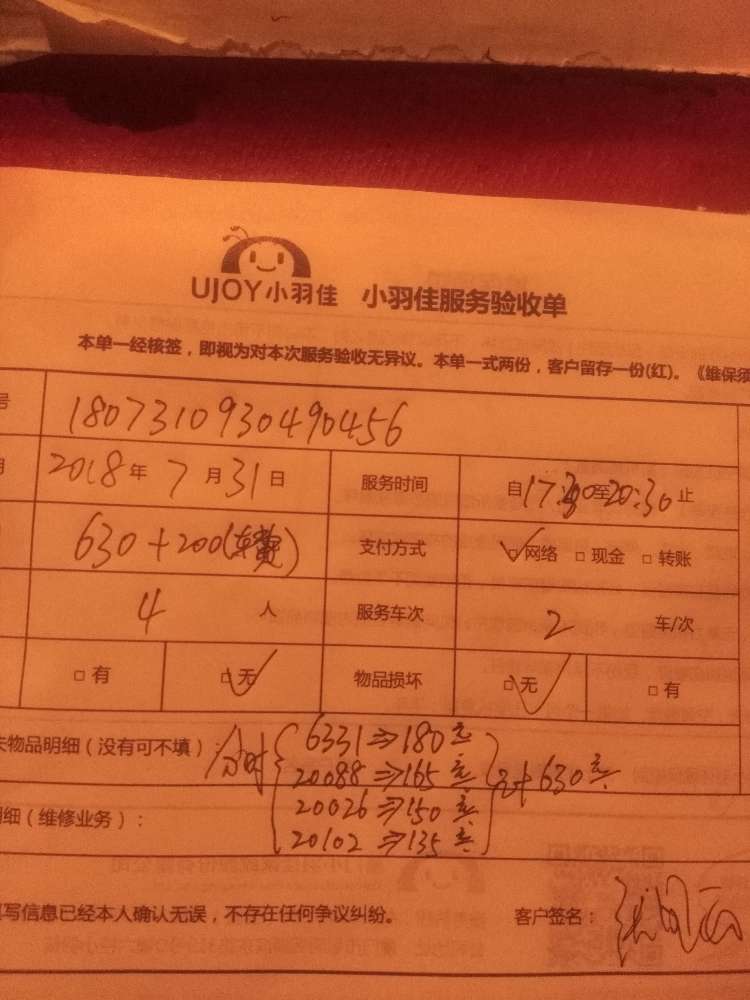 UJOY小羽佳 小羽佳服务验收单
本单一经核签，即视为对本次服务验收无异议。本单一式两份，客户留存一份(红)。《维保须
号 1807310930490456
2018年 7月31日 服务时间 自17:30至20:30止
630+200(车费) 支付方式 ☑网络 □现金 □转账
4 人 服务车次 2 车/次
□有 ☑无 物品损坏 ☑无 □有
失物品明细（没有可不填）： 分时
6331⇒180元
20088⇒165元
20026⇒150元
20102⇒135元
共计630元
明细（维修业务）：
填写信息已经本人确认无误，不存在任何争议纠纷。 客户签名：